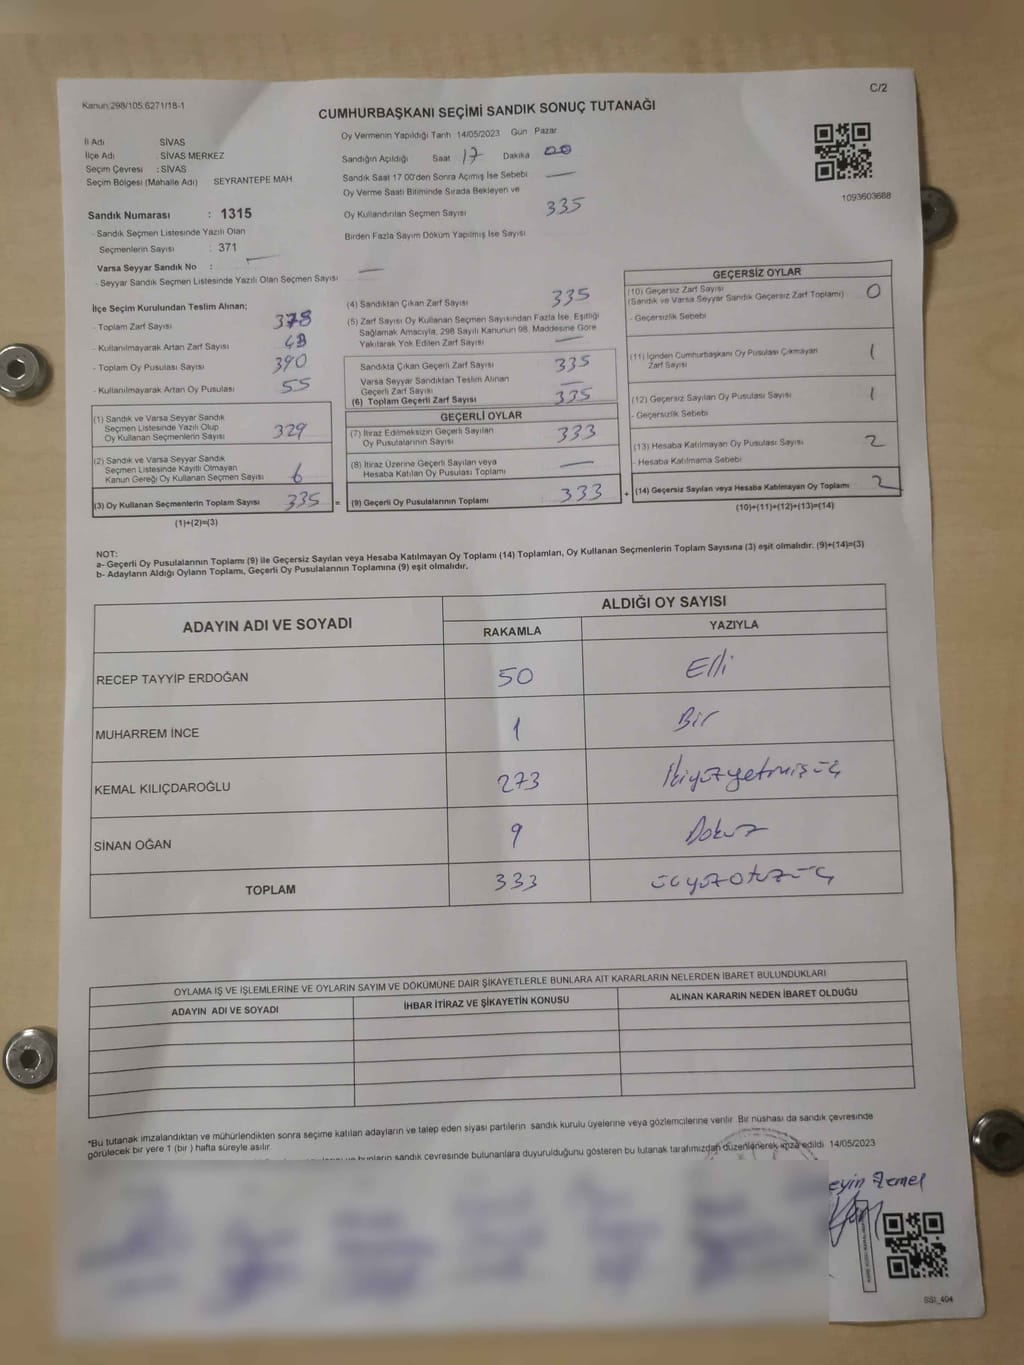 Kanun:298/105;6271/18-1
C/2
CUMHURBAŞKANI SEÇİMİ SANDIK SONUÇ TUTANAĞI
İl Adı SİVAS
İlçe Adı : SİVAS MERKEZ
Seçim Çevresi : SİVAS
Seçim Bölgesi (Mahalle Adı) SEYRANTEPE MAH
Sandık Numarası : 1315
- Sandık Seçmen Listesinde Yazılı Olan
Seçmenlerin Sayısı : 371
Varsa Seyyar Sandık No : —
- Seyyar Sandık Seçmen Listesinde Yazılı Olan Seçmen Sayısı —
Oy Vermenin Yapıldığı Tarih 14/05/2023 Gün Pazar
Sandığın Açıldığı Saat 17 Dakika 00
Sandık Saat 17.00'den Sonra Açımış İse Sebebi —
Oy Verme Saati Bitiminde Sırada Bekleyen ve
Oy Kullandırılan Seçmen Sayısı 335
Birden Fazla Sayım Döküm Yapılmış İse Sayısı
1093603688
İlçe Seçim Kurulundan Teslim Alınan;
- Toplam Zarf Sayısı 378
- Kullanılmayarak Artan Zarf Sayısı 43
- Toplam Oy Pusulası Sayısı 390
- Kullanılmayarak Artan Oy Pusulası 55
(1) Sandık ve Varsa Seyyar Sandık
Seçmen Listesinde Yazılı Olup
Oy Kullanan Seçmenlerin Sayısı 329
(2) Sandık ve Varsa Seyyar Sandık
Seçmen Listesinde Kayıtlı Olmayan
Kanun Gereği Oy Kullanan Seçmen Sayısı 6
(3) Oy Kullanan Seçmenlerin Toplam Sayısı 335 =
(1)+(2)=(3)
(4) Sandıktan Çıkan Zarf Sayısı 335
(5) Zarf Sayısı Oy Kullanan Seçmen Sayısından Fazla İse, Eşitliği
Sağlamak Amacıyla, 298 Sayılı Kanunun 98. Maddesine Göre
Yakılarak Yok Edilen Zarf Sayısı —
Sandıkta Çıkan Geçerli Zarf Sayısı 335
Varsa Seyyar Sandıktan Teslim Alınan
Geçerli Zarf Sayısı —
(6) Toplam Geçerli Zarf Sayısı 335
GEÇERLİ OYLAR
(7) İtiraz Edilmeksizin Geçerli Sayılan
Oy Pusulalarının Sayısı 333
(8) İtiraz Üzerine Geçerli Sayılan veya
Hesaba Katılan Oy Pusulası Toplamı —
(9) Geçerli Oy Pusulalarının Toplamı 333 +
GEÇERSİZ OYLAR
(10) Geçersiz Zarf Sayısı
(Sandık ve Varsa Seyyar Sandık Geçersiz Zarf Toplamı) 0
- Geçersizlik Sebebi
(11) İçinden Cumhurbaşkanı Oy Pusulası Çıkmayan
Zarf Sayısı 1
(12) Geçersiz Sayılan Oy Pusulası Sayısı 1
- Geçersizlik Sebebi
(13) Hesaba Katılmayan Oy Pusulası Sayısı 2
- Hesaba Katılmama Sebebi
(14) Geçersiz Sayılan veya Hesaba Katılmayan Oy Toplamı 2
(10)+(11)+(12)+(13)=(14)
NOT:
a- Geçerli Oy Pusulalarının Toplamı (9) ile Geçersiz Sayılan veya Hesaba Katılmayan Oy Toplamı (14) Toplamları, Oy Kullanan Seçmenlerin Toplam Sayısına (3) eşit olmalıdır. (9)+(14)=(3)
b- Adayların Aldığı Oyların Toplamı, Geçerli Oy Pusulalarının Toplamına (9) eşit olmalıdır.
ADAYIN ADI VE SOYADI
ALDIĞI OY SAYISI
RAKAMLA YAZIYLA
RECEP TAYYİP ERDOĞAN 50 Elli
MUHARREM İNCE 1 Bir
KEMAL KILIÇDAROĞLU 273 İkiyüzyetmişüç
SİNAN OĞAN 9 Dokuz
TOPLAM 333 üçyüzotuzüç
OYLAMA İŞ VE İŞLEMLERİNE VE OYLARIN SAYIM VE DÖKÜMÜNE DAİR ŞİKAYETLERLE BUNLARA AİT KARARLARIN NELERDEN İBARET BULUNDUKLARI
ADAYIN ADI VE SOYADI İHBAR İTİRAZ VE ŞİKAYETİN KONUSU ALINAN KARARIN NEDEN İBARET OLDUĞU
*Bu tutanak imzalandıktan ve mühürlendikten sonra seçime katılan adayların ve talep eden siyasi partilerin sandık kurulu üyelerine veya gözlemcilerine verilir. Bir nüshası da sandık çevresinde
görülecek bir yere 1 (bir) hafta süreyle asılır.
bunların sandık çevresinde bulunanlara duyurulduğunu gösteren bu tutanak tarafımızdan düzenlenerek imza edildi 14/05/2023
eyin Temel
SS1_404